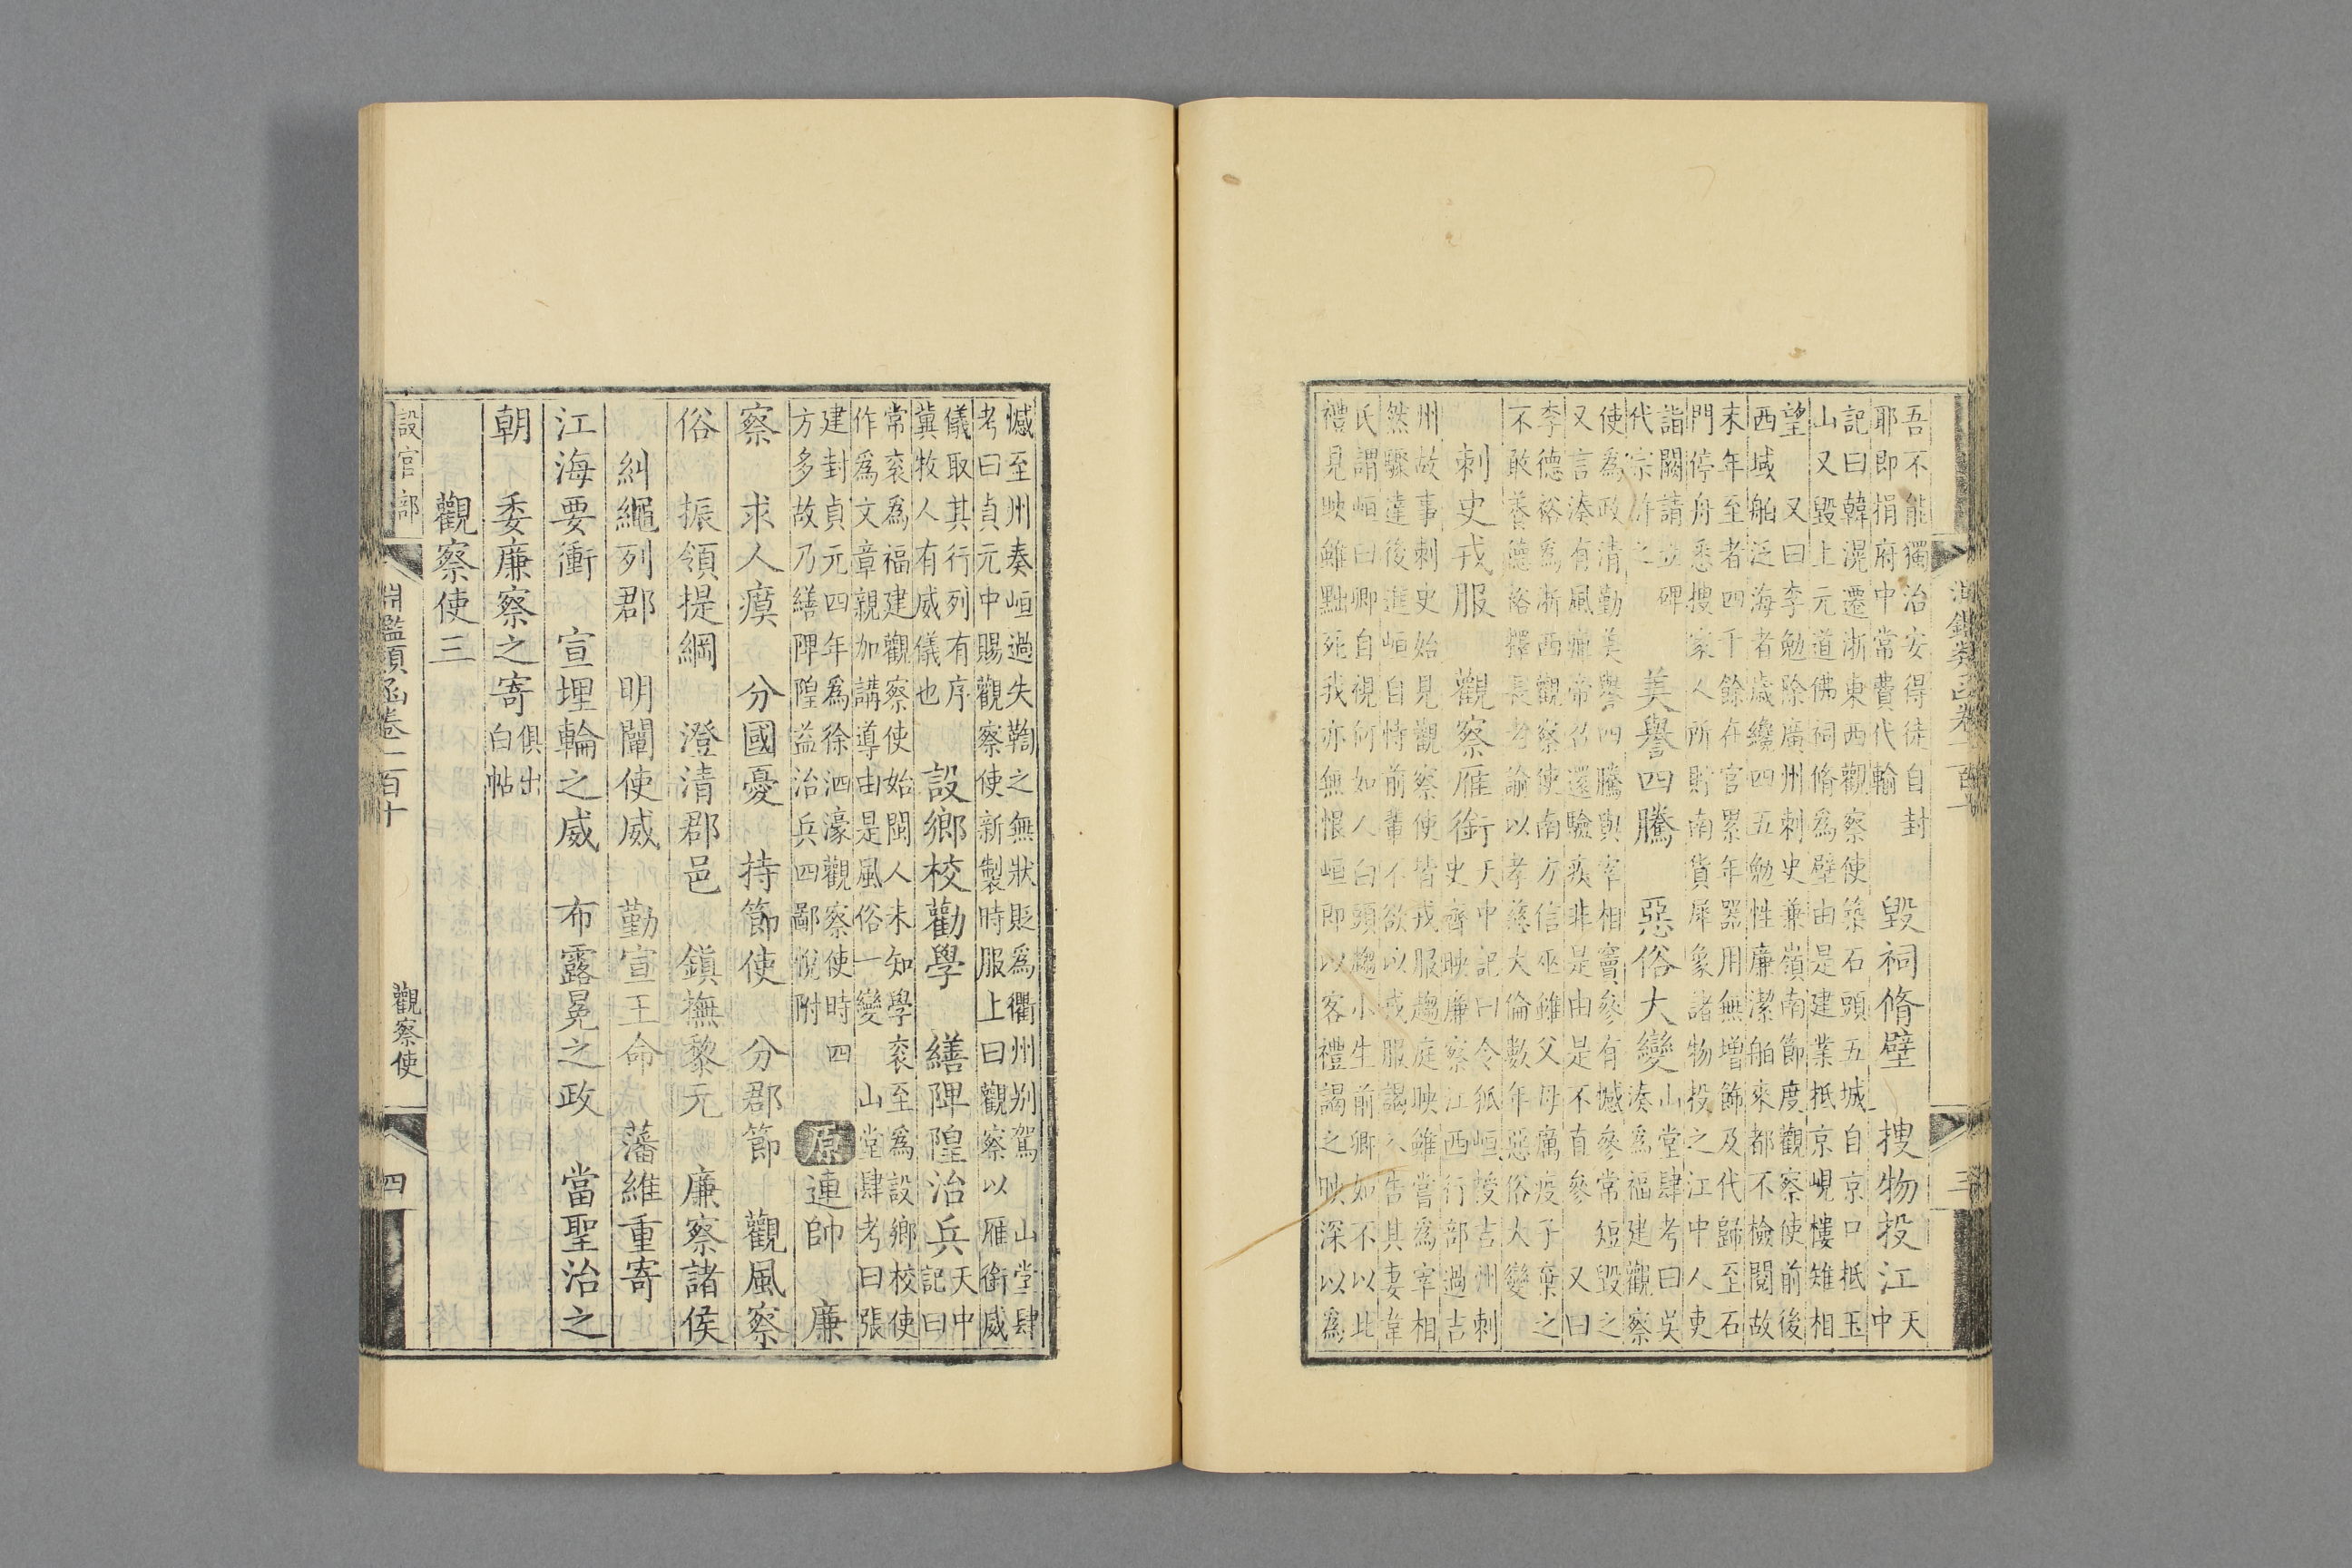 淵鑑類函卷一百十 三
吾不能獨治安得徒自封
耶即捐府中常費代輸
毀祠脩壁 搜物投江
天
中
記曰韓滉遷浙東西觀察使築石頭五城自京口抵玉
山又毀上元道佛祠脩爲壁由是建業抵京峴樓雉相
望 又曰李勉除廣州刺史兼嶺南節度觀察使前後
西域舶泛海者歲纔四五勉性廉潔舶來都不檢閱故
末年至者四千餘在官累年器用無增飾及代歸至石
門停舟悉搜家人所貯南貨犀象諸物投之江中人吏
詣闕請立碑
代宗許之
美譽四騰 惡俗大變
山堂肆考曰吳
湊爲福建觀察
使爲政清勤美譽四騰與宰相竇參有憾參常短毀之
又言湊有風痺帝召還驗疾非是由是不直參 又曰
李德裕爲浙西觀察使南方信巫雖父母癘疫子棄之
不敢養德裕擇長老諭以孝慈大倫數年惡俗大變
刺史戎服 觀察雁銜
天中記曰令狐峘授吉州刺
史齊映廉察江西行部過吉
州故事刺史始見觀察使皆戎服趨庭映雖嘗爲宰相
然驟達後進峘自恃前輩不欲以戎服謁入告其妻韋
氏謂峘曰卿自視何如人白頭趨小生前卿如不以此
禮見映雖黜死我亦無恨峘即以客禮謁之映深以爲
憾至州奏峘過失鞫之無狀貶爲衢州别駕 山堂肆
考曰貞元中賜觀察使新製時服上曰觀察以雁銜威
儀取其行列有序
冀牧人有威儀也
設鄉校勸學 繕陴隍治兵
天中
記曰
常衮爲福建觀察使始閩人未知學衮至爲設鄉校使
作爲文章親加講導由是風俗一變 山堂肆考曰張
建封貞元四年爲徐泗濠觀察使時四
方多故乃繕陴隍益治兵四鄙悅附
原 連帥 廉
察 求人瘼 分國憂 持節使 分郡節 觀風察
俗 振領提綱 澄清郡邑 鎮撫黎元 廉察諸侯
糾繩列郡 明闡使威 勤宣王命 藩維重寄
江海要衝 宣埋輪之威 布露冕之政 當聖治之
朝 委廉察之寄
俱出
白帖
觀察使三
設官部 淵鑑類函卷一百十 觀察使 四